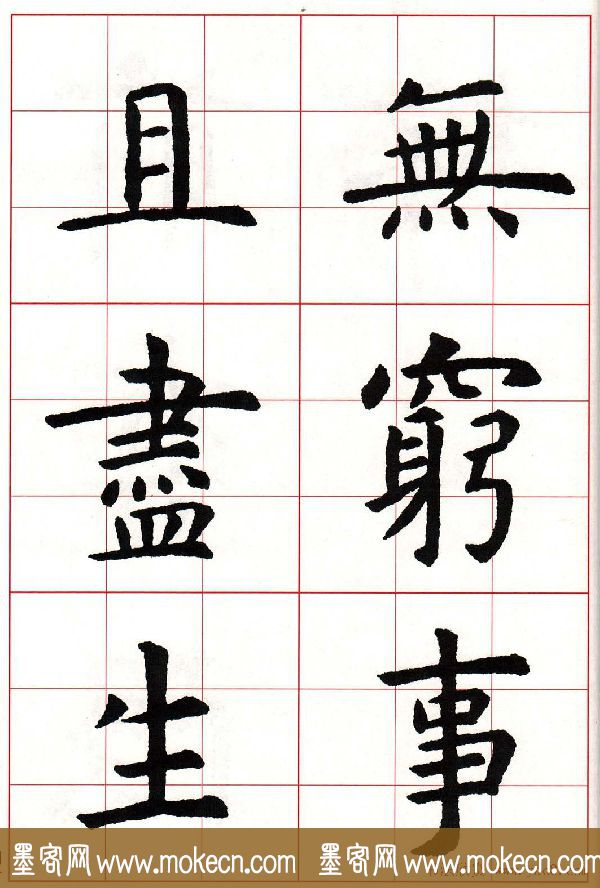 無窮事
且盡生
墨客网 www.mokecn.com 墨客网 www.mokecn.com